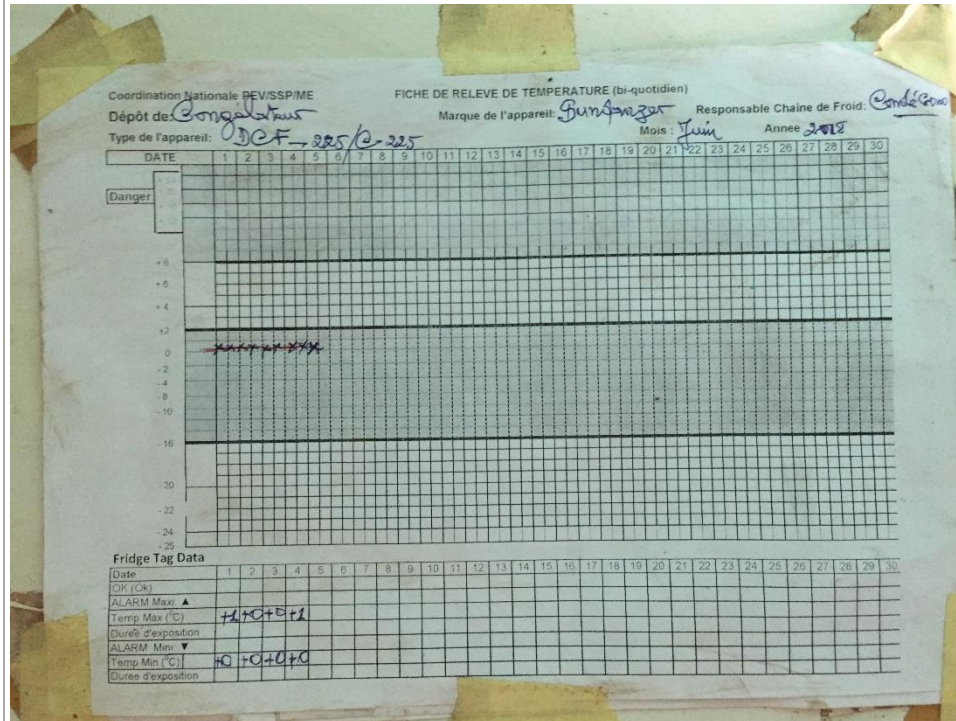 Coordination Nationale PEV/SSP/ME FICHE DE RELEVE DE TEMPERATURE (bi-quotidien)
Dépôt de: Congélateur Marque de l'appareil: Responsable Chaine de Froid: Condé
Type de l'appareil: DCF - 225/C-225 Mois : Juin Annee 2018
DATE 1 2 3 4 5 6 7 8 9 10 11 12 13 14 15 16 17 18 19 20 21 22 23 24 25 26 27 28 29 30
Danger
+ 8
+ 6
+ 4
+2
0
- 2
- 4
- 8
- 10
- 16
- 20
- 22
- 24
- 25
Fridge Tag Data
Date 1 2 3 4 5 6 7 8 9 10 11 12 13 14 15 16 17 18 19 20 21 22 23 24 25 26 27 28 29 30
OK (Ok)
ALARM Max: ▲
Temp Max (°C) +1 +0 +0 +1
Durée d'exposition
ALARM Mini: ▼
Temp Min (°C) +0 +0 +0 +0
Duree d'exposition